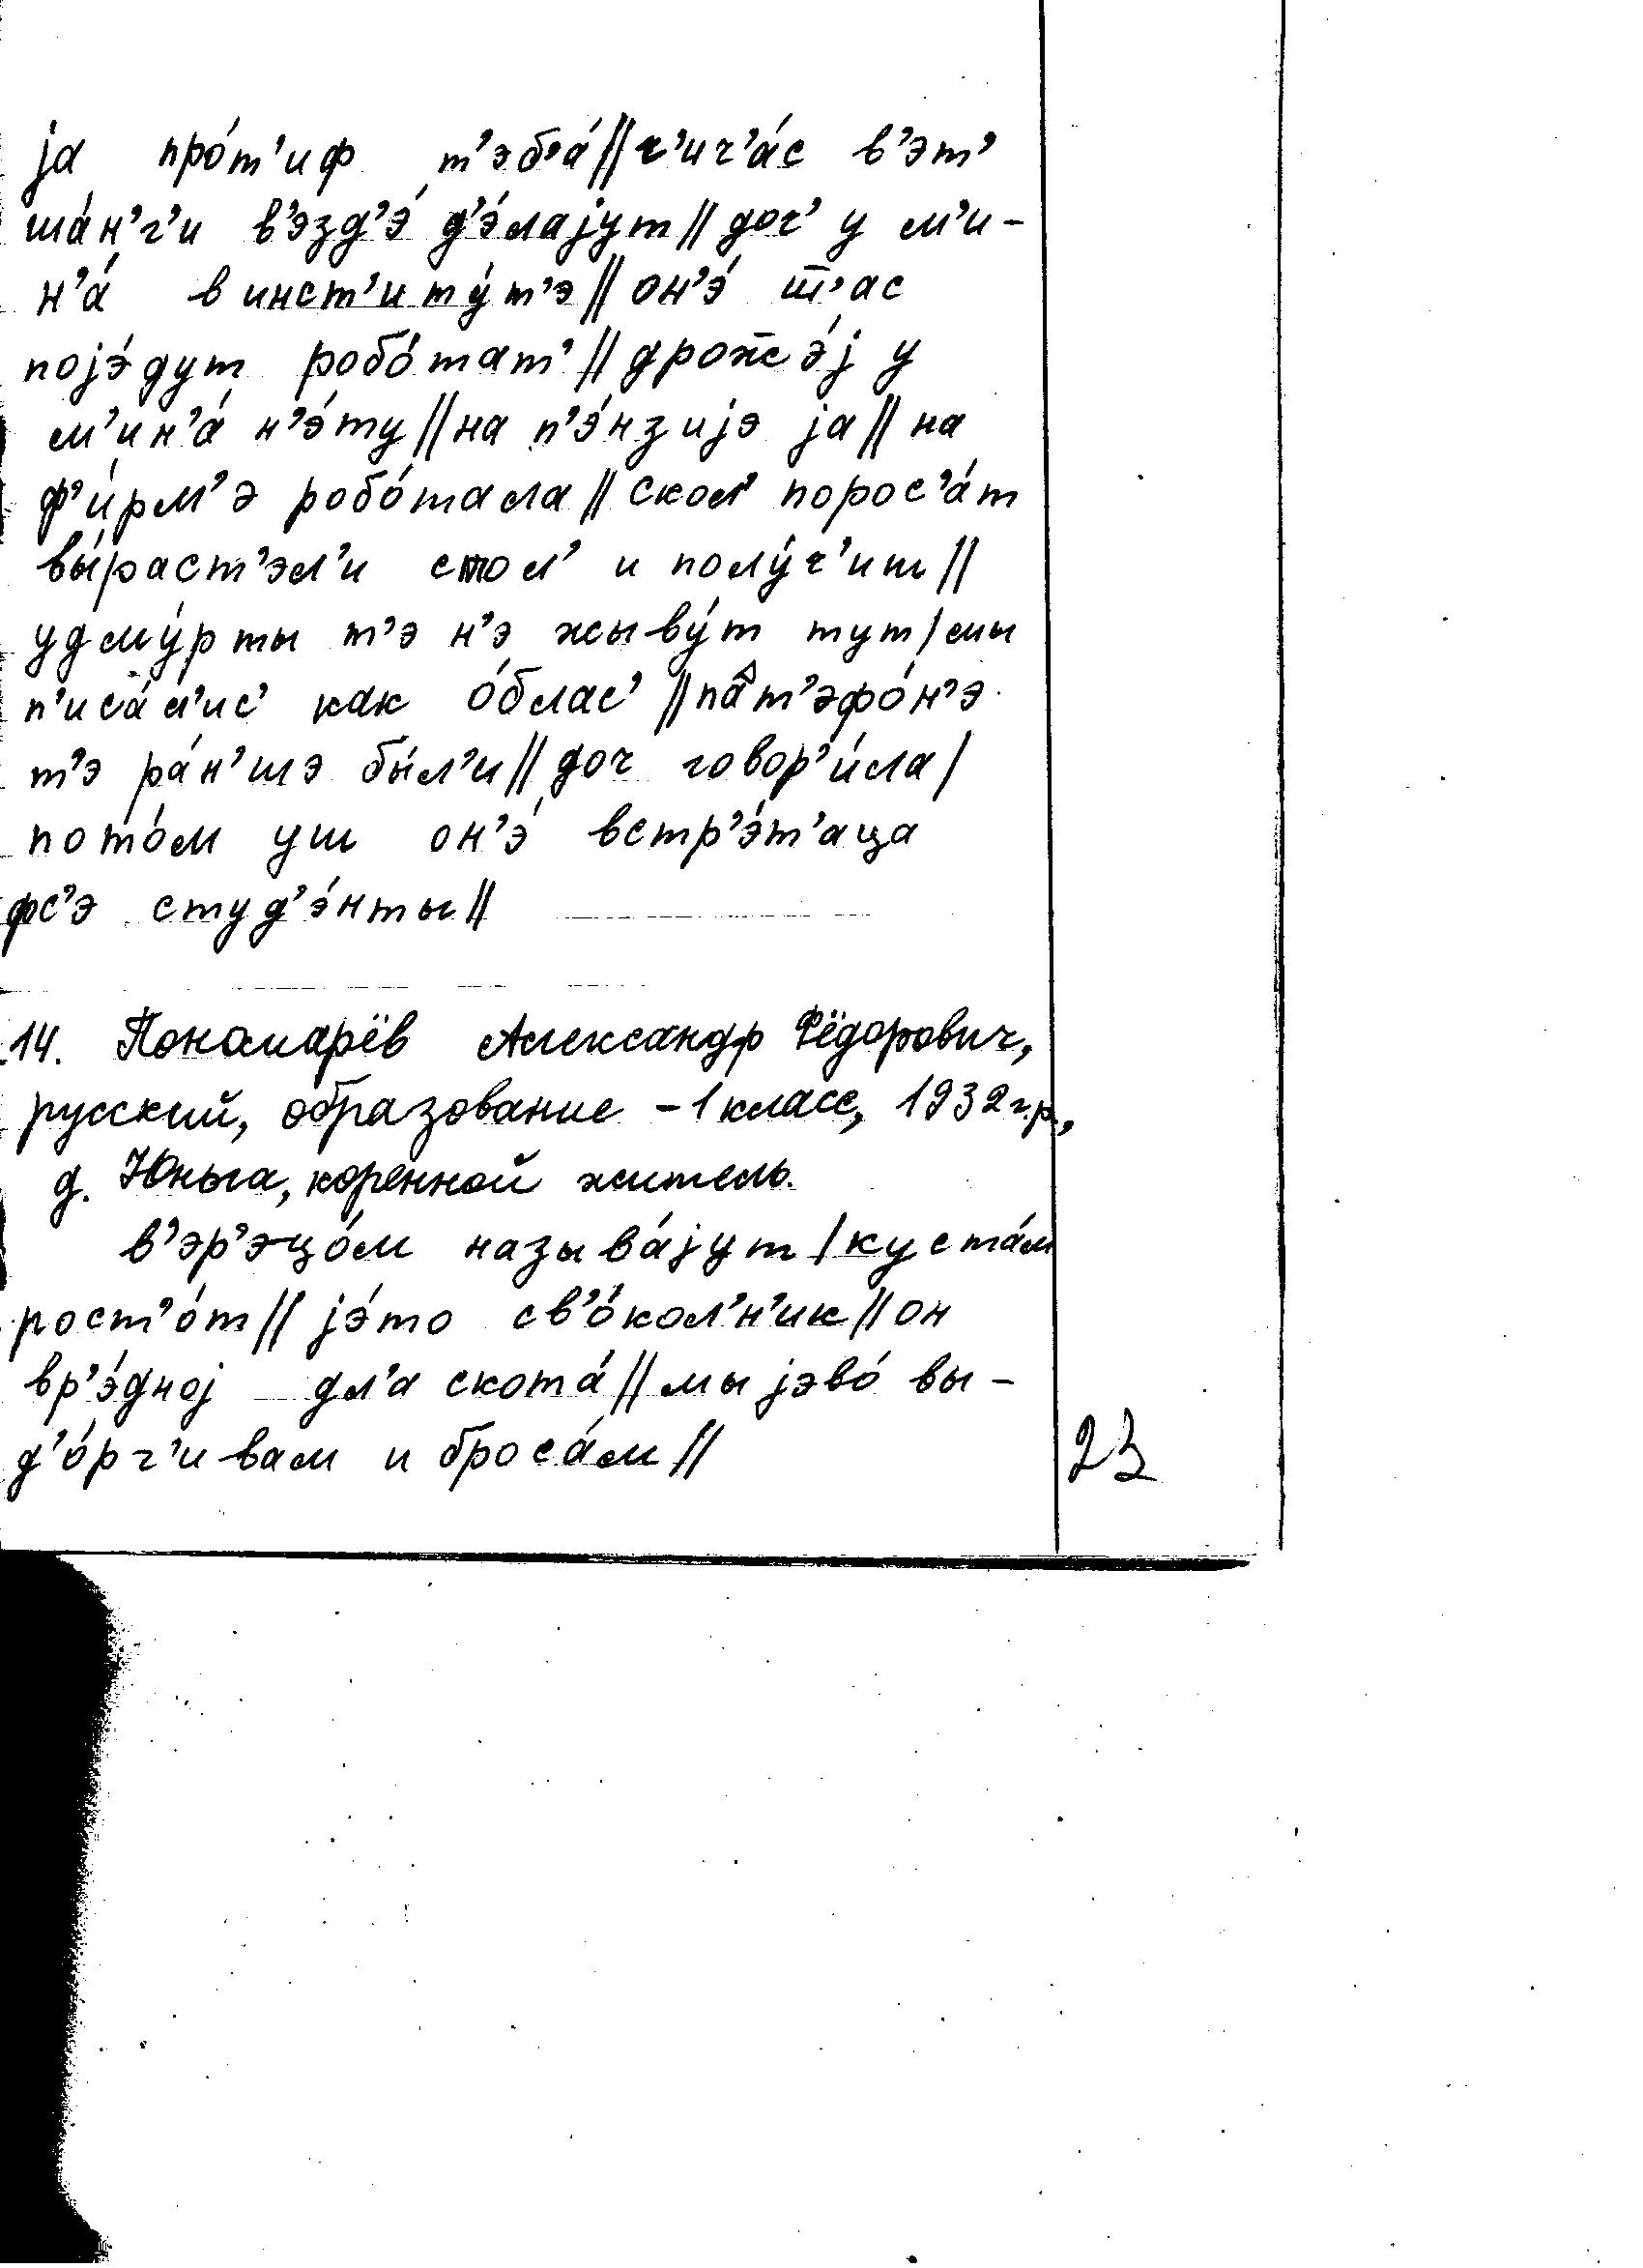 jа про́т'иф т'эб'а́ // ч'ич'а́с в'эт'
ша́н'г'и в'эзд'э́ д'э́лаjут // доч' у м'и-
н'а́ в инст'иту́т'э // он'э́ ш̅'ас
поjэ́дут робо́тат' // дрож̅э́j у
м'ин'а́ н'э́ту // на п'э́нзиjэ jа // на
ф'и́рм'э робо́тала // скол' порос'а́т
вы́раст'эл'и стол' и полу́ч'иш //
удму́рты т'э н'э жыву́т тут / мы
п'иса́л'ис' как о́блас' // па̂т'эфо́н'э
т'э ра́н'шэ бы́л'и // доч говор'и́ла /
пото́м уш он'э́ встр'э́т'аца
фс'э студ'э́нты //
14. Пономарёв Александр Фёдорович,
русский, образование – 1 класс, 1932 г.р.,
д. Юньга, коренной житель.
в'эр'эцо́м называ́jут / куста́м
рост'о́т // jэ́то св'о́кол'н'ик // он
вр'э́дноj дл'а скота́ // мы jэво́ вы-
д'о́рг'ивам и броса́м //
23